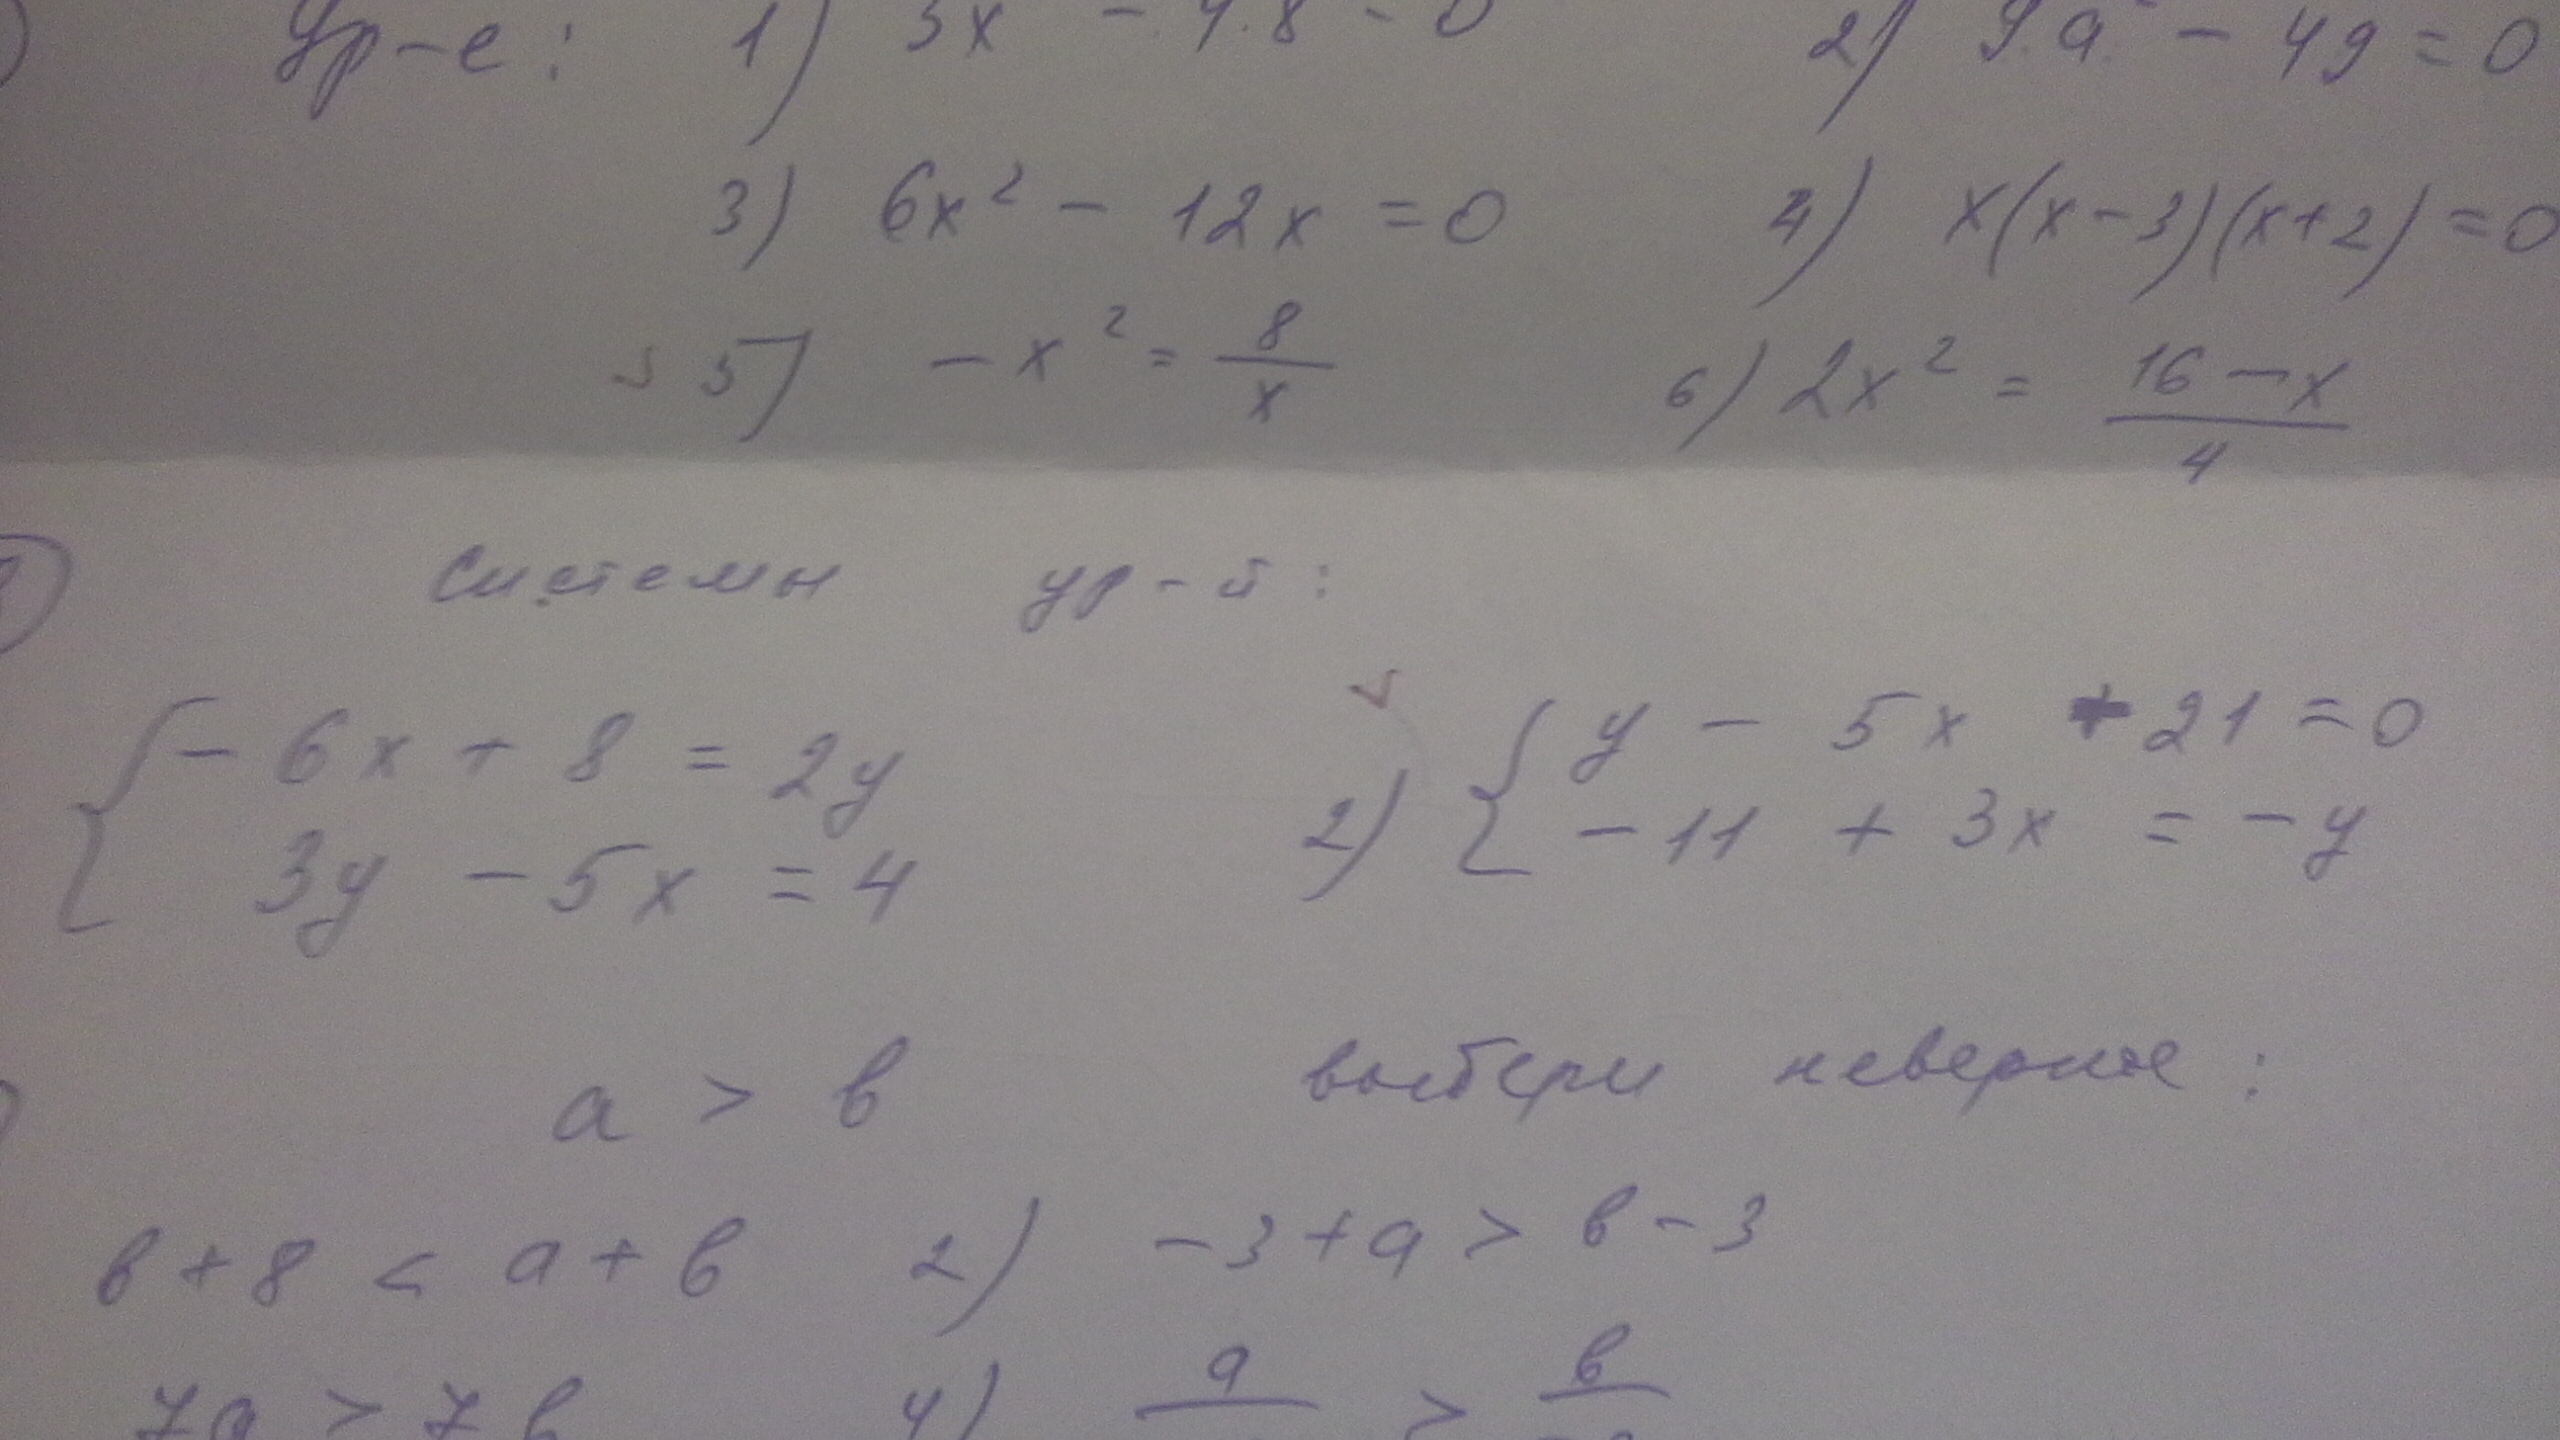 Ур-е: 1) 3x - 4.8 = 0 2) 9a² - 49 = 0
3) 6x² - 12x = 0 4) x(x-3)(x+2) = 0
5) -x² = 8/x 6) 2x² = (16-x)/4
Системы ур-й:
{ -6x + 8 = 2y
3y - 5x = 4
2) { y - 5x + 21 = 0
-11 + 3x = -y
a > b выбери неверное:
b + 8 < a + b 2) -3 + a > b - 3
7a > 7b 4) a > b